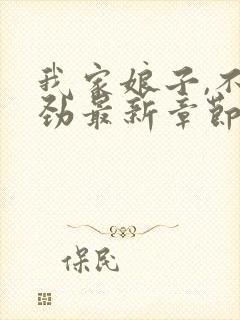 我家娘子,不
劲最新章节
保民